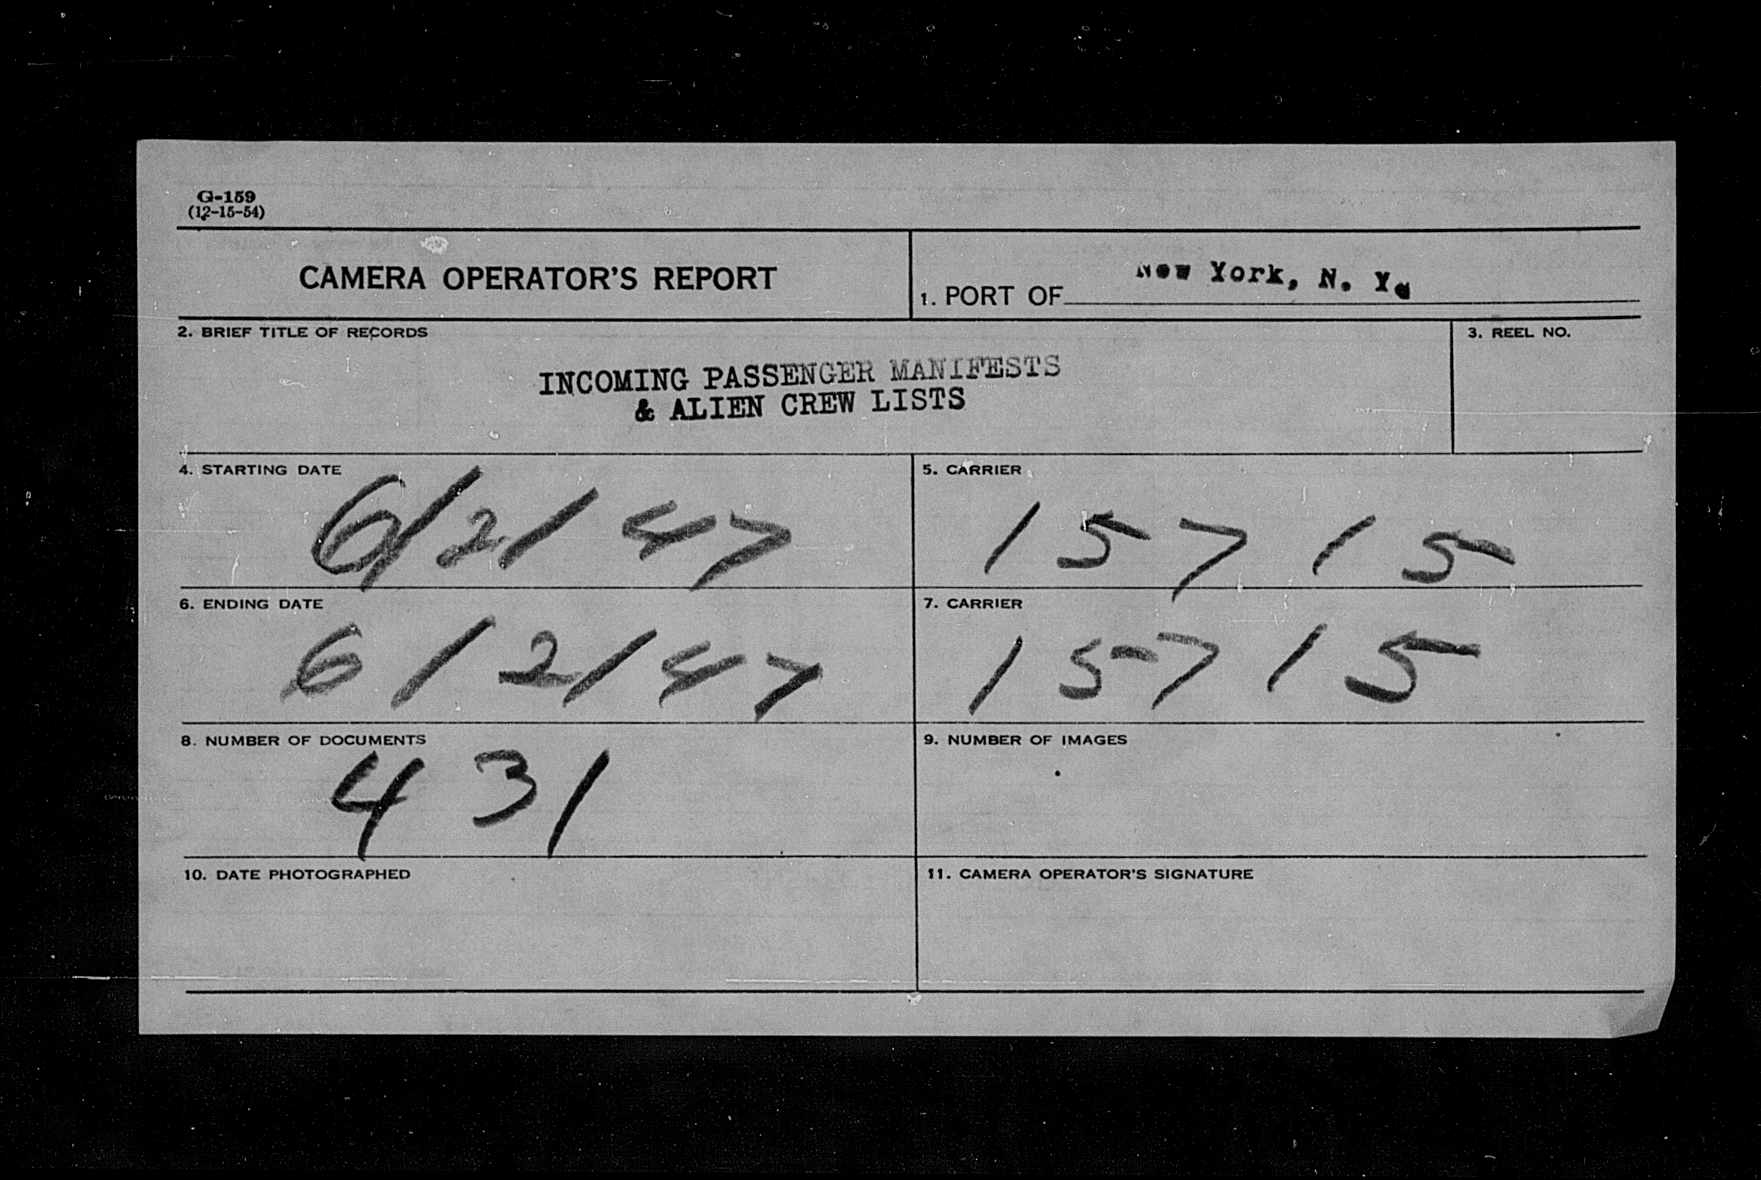 G-159
(12-15-54)
CAMERA OPERATOR'S REPORT
1. PORT OF New York, N. Y.
2. BRIEF TITLE OF RECORDS
3. REEL NO.
INCOMING PASSENGER MANIFESTS
& ALIEN CREW LISTS
4. STARTING DATE
6/2/47
5. CARRIER
15715
6. ENDING DATE
6/2/47
7. CARRIER
15715
8. NUMBER OF DOCUMENTS
431
9. NUMBER OF IMAGES
10. DATE PHOTOGRAPHED
11. CAMERA OPERATOR'S SIGNATURE